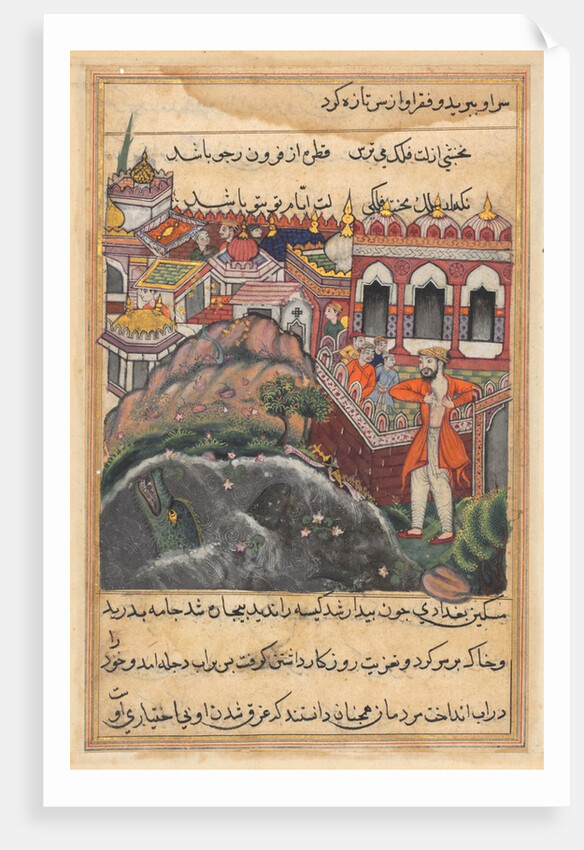 سر او ببرید و فقر او از سر تازه کرد
نخشبی از لت فلک می ترس قطره از فرون رجو باشد
لت ایام تو بتو باشد
مسکین بغدادی چون بیدار شد کیسه را ندید بیجان شد جامه بدرید
و خاک بر سر کرد و تعزیت روزکار داشتن کرفت بس بر اب دجله امد و خود را
در اب انداخت مردمان همجنان دانستند که غرق شدن او بی اختیاری اوست